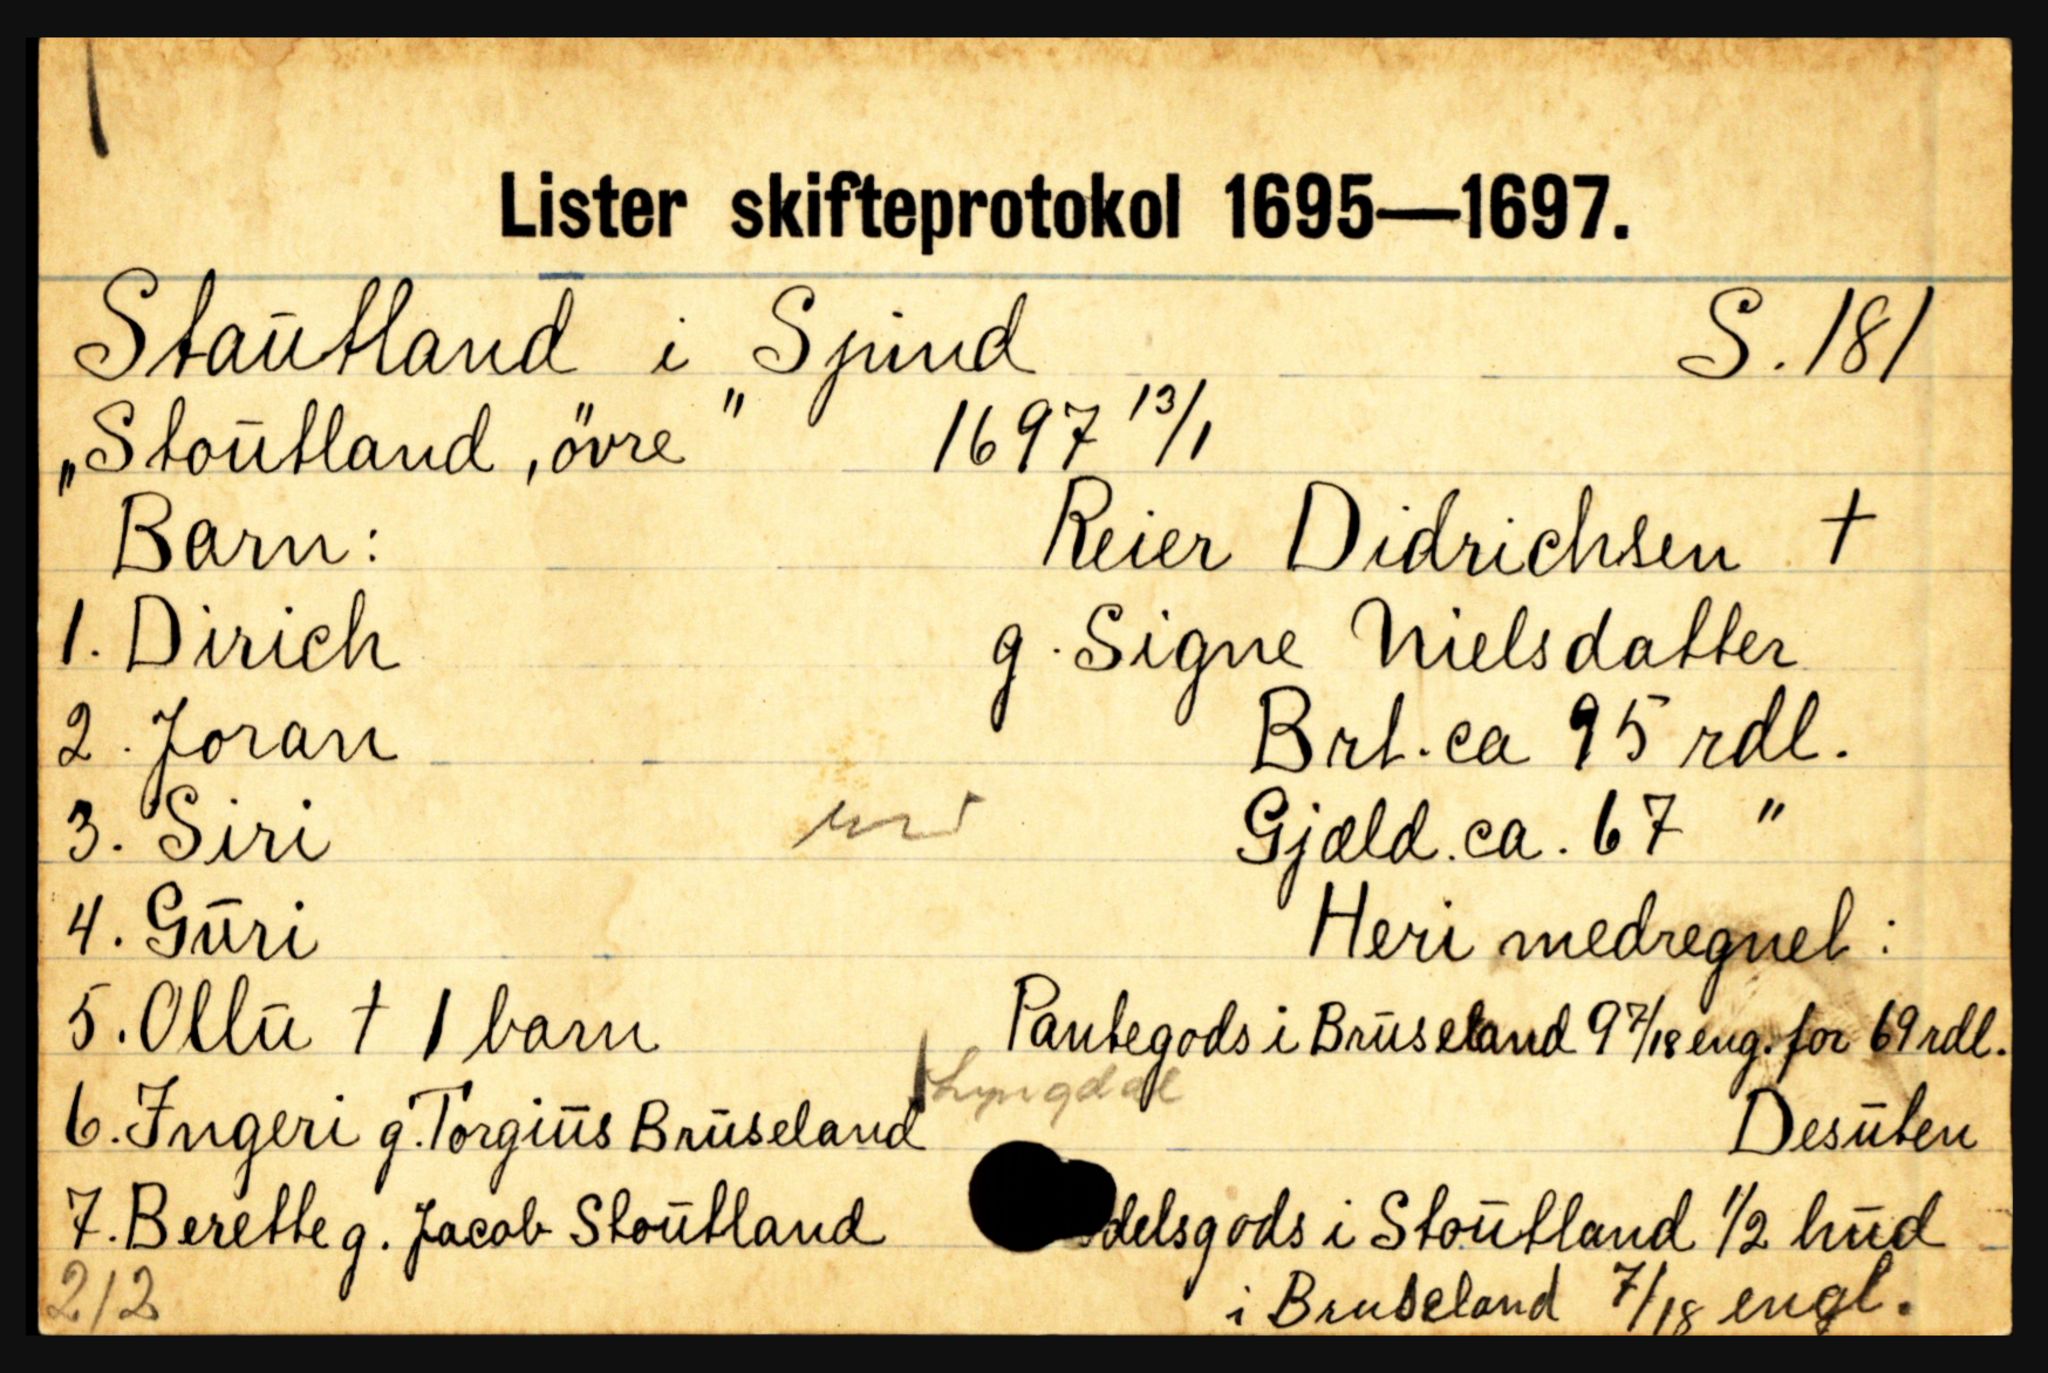 Lister skifteprotokol 1695—1697.
Staūtland i Spind S. 181
„Stoūtland, övre" 1697 13/1
Barn: Reier Didrichsen †
1. Dirich g. Signe Nielsdatter
2. Joran Brt. ca 95 rdl.
3. Siri Gjæld. ca. 67 "
4. Gūri Heri medregnet:
5. Ollū † 1 barn Pantegods i Brūseland 9 7/18 eng. for 69 rdl.
Lyngdal
6. Ingeri g. Torgiūs Brūseland Desūten
7. Berette g. Jacob Stoūtland delsgods i Stoūtland 1/2 hūd
212 i Bruseland 7/18 engl.